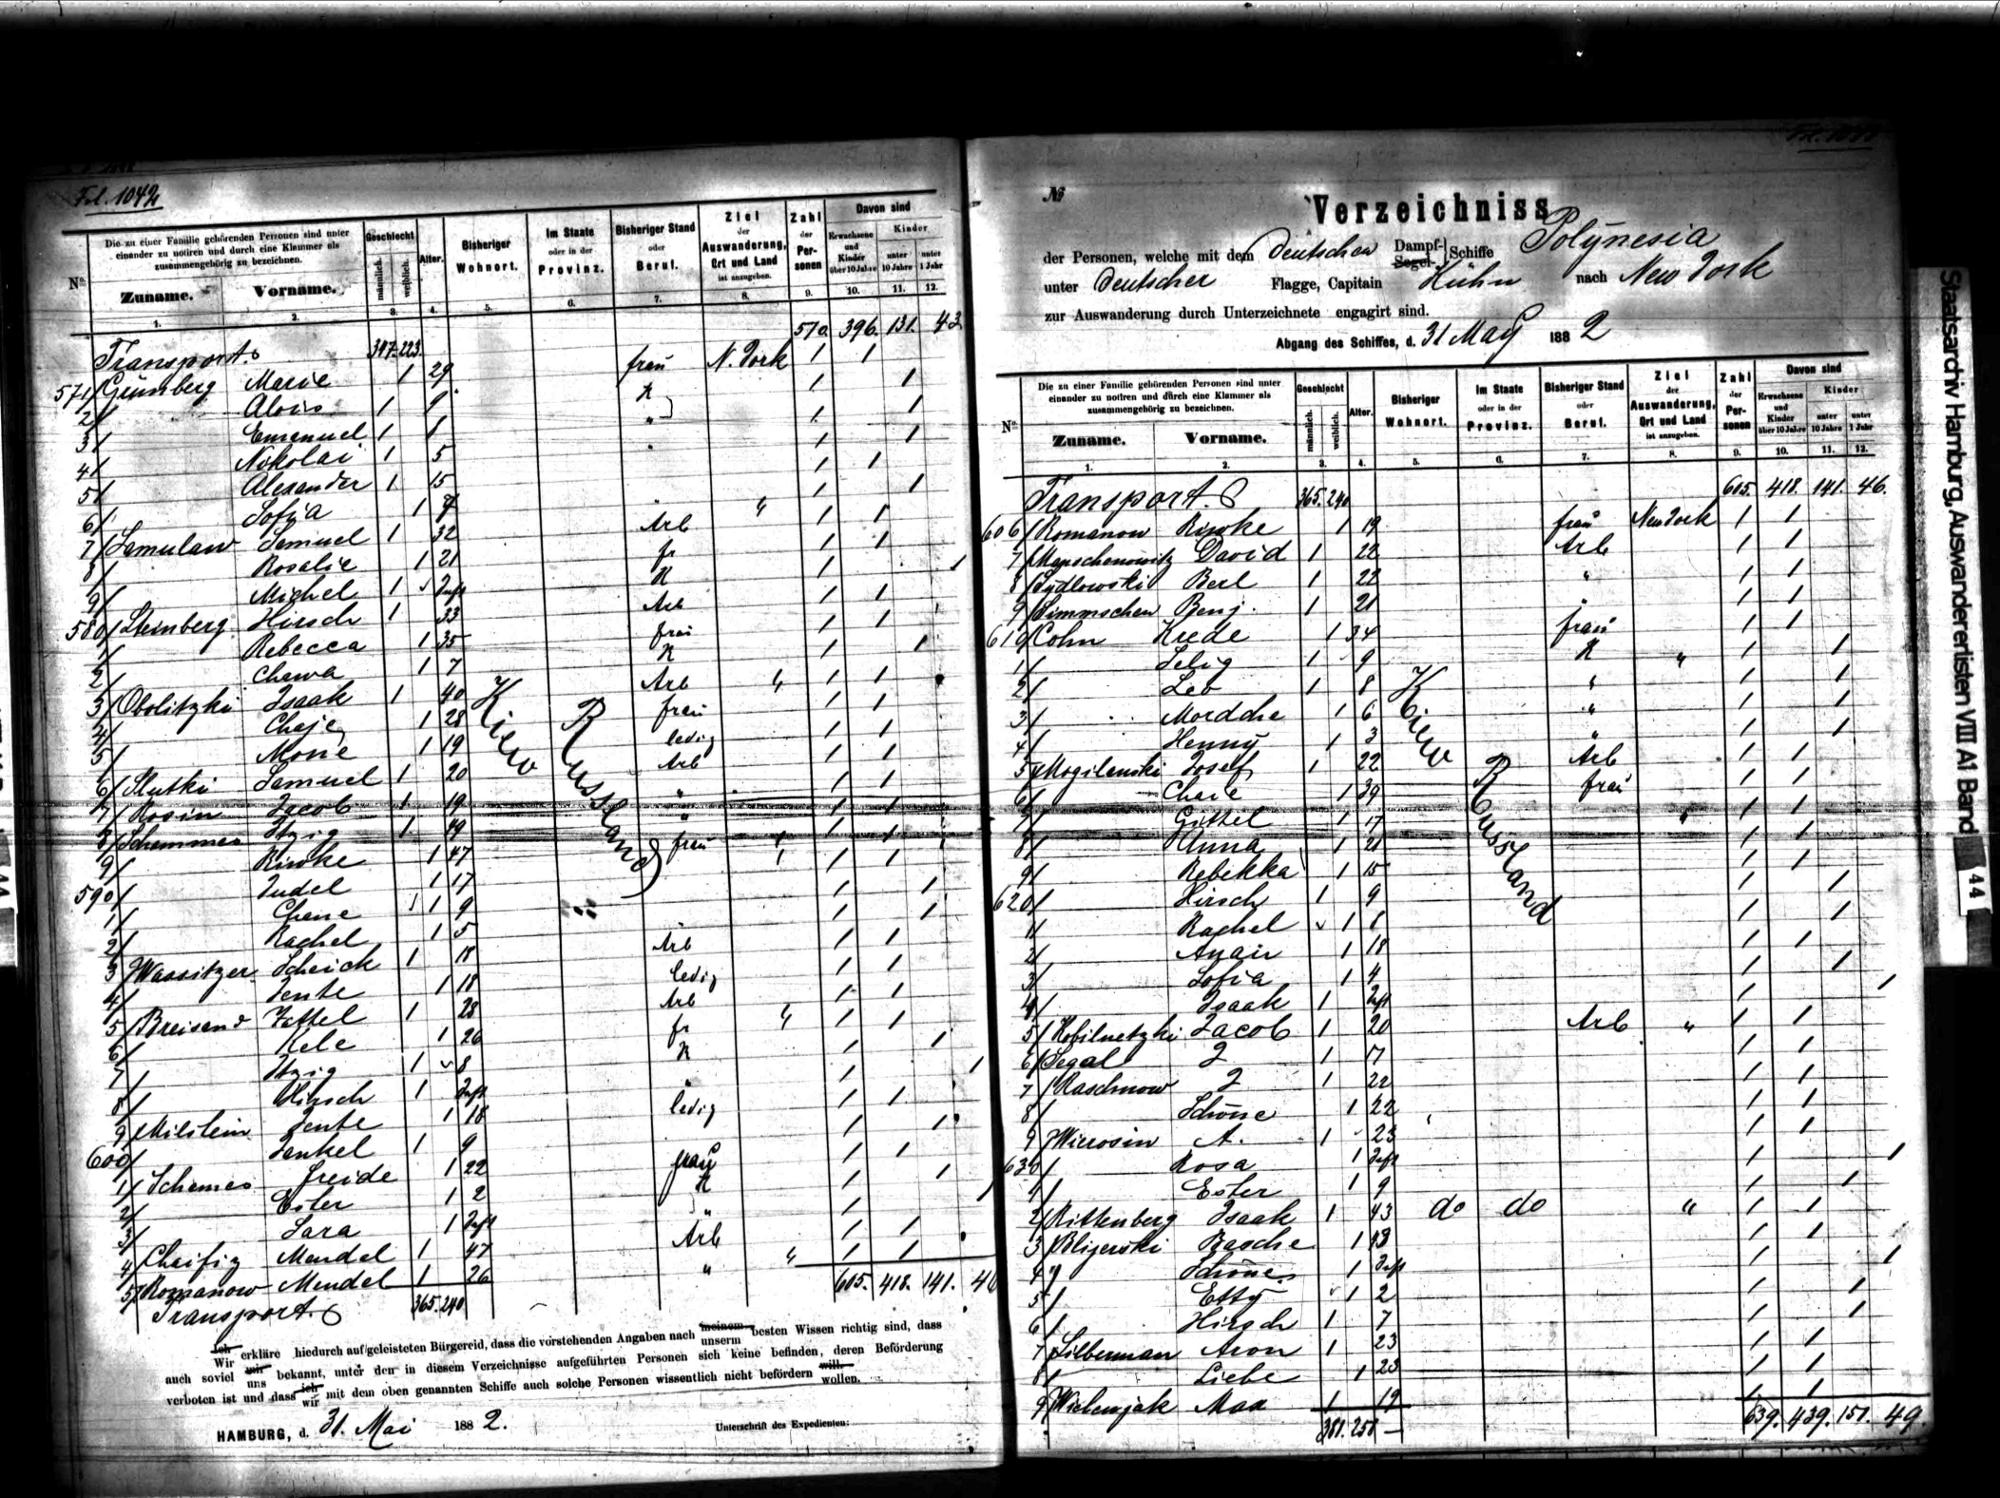 Fol. 1042
Die zu einer Familie gehörenden Personen sind unter einander zu notiren und durch eine Klammer als zusammengehörig zu bezeichnen.
Geschlecht
Bisheriger Wohnort.
Im Staate oder in der Provinz.
Bisheriger Stand oder Beruf.
Ziel der Auswanderung, Ort und Land ist anzugeben.
Zahl der Personen
Davon sind
Erwachsene und Kinder über 10 Jahre
Kinder
unter 10 Jahre
unter 1 Jahr
No.
Zuname.
Vorname.
männlich.
weiblich.
Alter.
1. 2. 3. 4. 5. 6. 7. 8. 9. 10. 11. 12.
Transport. 347 223. 570. 396. 131. 43.
571 Grünberg Marie 1 29 frau N. York 1 1
2 Alois 1 9 K 1 1
3 Emanuel 1 1 " 1 1
4 Nikolai 1 5 " 1 1
5 Alexander 1 15 1 1
6 Sofia 1 7 " " 1 1
7 Samulaw Samuel 1 32 Arb 1 1
8 Rosalie 1 21 fr 1 1
9 Michel 1 Inft K 1 1
580 Steinberg Hirsch 1 33 Arb 1 1
1 Rebecca 1 35 frau 1 1
2 Chawa 1 7 K 1 1
3 Obolitzki Isaak 1 40 Arb " 1 1
4 Chaje 1 28 frau 1 1
5 1 19 ledig 1 1
6 Slutki Samuel 1 20 Arb 1 1
7 Rosin Jacob 1 19 " 1 1
8 Schemmes Itzig 1 49 " 1 1
9 Riwke 1 47 frau 1 1
590 Judel 1 17 1 1
1 Chene 1 9 1 1
2 Rachel 1 5 1 1
3 Waasitzer Scheick 1 18 Arb 1 1
4 Jente 1 18 ledig 1 1
5 Breisand 1 28 Arb " 1 1
6 1 26 fr 1 1
7 Itzig 1 8 K 1 1
8 Hirsch 1 Inft " 1 1
9 Milstein Jente 1 18 ledig 1 1
600 Jankel 1 9 1 1
1 Schemes Freide 1 22 frau 1 1
2 Ester 1 2 K 1 1
3 Sara 1 Inft " 1 1
4 Chaifiz Mendel 1 47 Arb " 1 1
5 Romanow Mendel 1 26 " 1 1
Kiew
Russland
Transport. 365. 240 605. 418. 141. 46
Ich Wir erkläre hiedurch auf geleisteten Bürgereid, dass die vorstehenden Angaben nach meinem unserm besten Wissen richtig sind, dass
auch soviel mir uns bekannt, unter den in diesem Verzeichnisse aufgeführten Personen sich keine befinden, deren Beförderung
verboten ist und dass ich wir mit dem oben genannten Schiffe auch solche Personen wissentlich nicht befördern will. wollen.
HAMBURG, d. 31. Mai 1882.
Unterschrift des Expedienten:
No
Verzeichniss
der Personen, welche mit dem Deutschen Dampf- Segel- Schiffe Polynesia
unter Deutscher Flagge, Capitain Kühn nach New York
zur Auswanderung durch Unterzeichnete engagirt sind.
Abgang des Schiffes, d. 31 May 1882
Die zu einer Familie gehörenden Personen sind unter einander zu notiren und durch eine Klammer als zusammengehörig zu bezeichnen.
Geschlecht
Bisheriger Wohnort.
Im Staate oder in der Provinz.
Bisheriger Stand oder Beruf.
Ziel der Auswanderung, Ort und Land ist anzugeben.
Zahl der Personen
Davon sind
Erwachsene und Kinder über 10 Jahre
Kinder
unter 10 Jahre
unter 1 Jahr
No.
Zuname.
Vorname.
männlich.
weiblich.
Alter.
1. 2. 3. 4. 5. 6. 7. 8. 9. 10. 11. 12.
Transport. 365. 240 605. 418. 141. 46.
606 Romanow Riwke 1 19 frau New York 1 1
7 Mapschenowitz David 1 22 Arb 1 1
8 Sydlowski Berl 1 22 " 1 1
9 Simmschen Benj. 1 21 " 1 1
610 Cohn Krede 1 34 frau 1 1
1 Selig 1 9 K " 1 1
2 Leb 1 8 " 1 1
3 Mordche 1 6 " 1 1
4 Henny 1 3 " 1 1
5 Mogilenski Josef 1 22 Arb 1 1
6 Chaie 1 39 frau 1 1
7 Gittel 1 17 1 1
8 Anna 1 21 1 1
9 Rebekka 1 15 1 1
620 Hirsch 1 9 1 1
1 Rachel 1 6 1 1
2 1 18 1 1
3 Sofia 1 4 1 1
4 Isaak 1 Inft 1 1
5 Kobilnetzki Jacob 1 20 Arb " 1 1
6 Segal J 1 17 1 1
7 Raschnow J 1 22 1 1
8 Schöne 1 22 1 1
9 Wierosin A. 1 23 1 1
630 Rosa 1 Inft 1 1
1 Ester 1 9 1 1
2 Rittenberg Isaak 1 43 do do " 1 1
3 Blijerski Basche 1 1 1
4 Schöne 1 Inft 1 1
5 Etty 1 2 1 1
6 Hirsch 1 7 1 1
7 Silberman Aron 1 23 1 1
8 Liebe 1 23 1 1
9 Wielemjak Max 1 19 1 1
Kiew
Russland
381. 258 639. 439. 151. 49.
Staatsarchiv Hamburg, Auswandererlisten VIII A1 Band 44